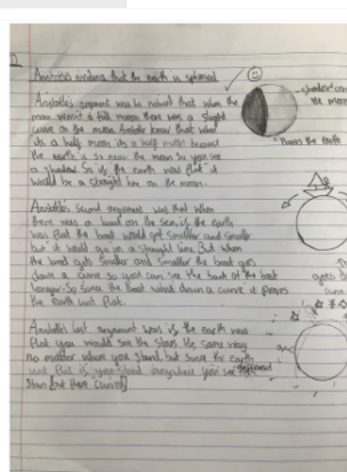 Aristotles evidence that the earth is spherical
Aristotle's argument was he noticed that when the
moon wasn't a full moon there was a slight
curve on the moon. Aristotle knew that when
its a half moon its a half moon because
the earth is so near the moon so you see
a shadow so if the earth was flat it
would be a straight line on the moon.
shadow on
the moon
Aristotles second argument was that when
there was a boat on the sea, if the earth
was flat the boat would get smaller and smaller
but it would go in a straight line. But when
the boat gets smaller and smaller the boat goes
down a curve so you can see the back of the boat
longer. So since the boat went down a curve it proves
the earth isnt flat.
goes
Aristotles last argument was if the earth was
flat you would see the stars the same way
no matter where you stand, but since the earth
isnt flat if you stand anywhere you see
different
stars